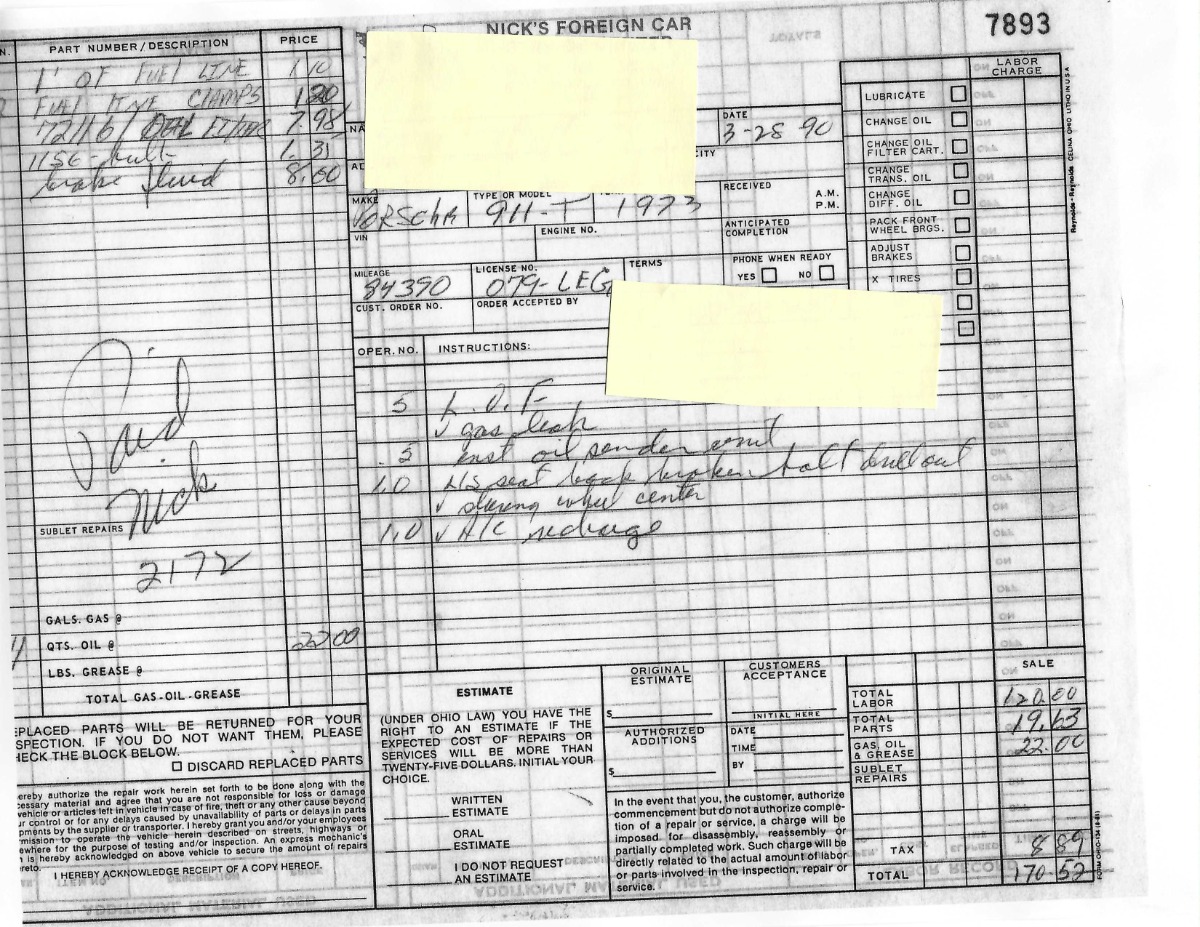 NICK'S FOREIGN CAR
7893
N. PART NUMBER/DESCRIPTION PRICE
1' OF FUEL LINE 1.10
FUEL LINE CLAMPS 1.20
72116 / OIL FILTER 7.98
bult 1.31
brake fluid 8.00
Paid
Nick
SUBLET REPAIRS
2172
GALS. GAS @
4 QTS. OIL @ 22 00
LBS. GREASE @
TOTAL GAS-OIL-GREASE
EPLACED PARTS WILL BE RETURNED FOR YOUR
SPECTION. IF YOU DO NOT WANT THEM, PLEASE
HECK THE BLOCK BELOW.
DISCARD REPLACED PARTS
ereby authorize the repair work herein set forth to be done along with the
cessary material and agree that you are not responsible for loss or damage
vehicle or articles left in vehicle in case of fire, theft or any other cause beyond
ur control or for any delays caused by unavailability of parts or delays in parts
pments by the supplier or transporter. I hereby grant you and/or your employees
mission to operate the vehicle herein described on streets, highways or
ewhere for the purpose of testing and/or inspection. An express mechanic's
n is hereby acknowledged on above vehicle to secure the amount of repairs
reto.
I HEREBY ACKNOWLEDGE RECEIPT OF A COPY HEREOF.
NA
AD
CITY
DATE
3-28 90
RECEIVED A.M.
P.M.
MAKE PORSCHE
TYPE OR MODEL 911-T
1973
ANTICIPATED
COMPLETION
VIN
ENGINE NO.
MILEAGE 84390
LICENSE NO. 079-LEG
TERMS
PHONE WHEN READY
YES NO
CUST. ORDER NO.
ORDER ACCEPTED BY
OPER. NO. INSTRUCTIONS:
5 L.O.F
√ gas leak
.5 inst oil sender unit
1.0 L/S seat back broken bolt drill out
√ stering wheel center
1.0 √ A/C recharge
LABOR
CHARGE
LUBRICATE
CHANGE OIL
CHANGE OIL
FILTER CART.
CHANGE
TRANS. OIL
CHANGE
DIFF. OIL
PACK FRONT
WHEEL BRGS.
ADJUST
BRAKES
X TIRES
Reynolds + Reynolds CELINA OHIO LITHO IN U.S.A.
ESTIMATE
(UNDER OHIO LAW) YOU HAVE THE
RIGHT TO AN ESTIMATE IF THE
EXPECTED COST OF REPAIRS OR
SERVICES WILL BE MORE THAN
TWENTY-FIVE DOLLARS. INITIAL YOUR
CHOICE.
WRITTEN
ESTIMATE
ORAL
ESTIMATE
I DO NOT REQUEST
AN ESTIMATE
ORIGINAL
ESTIMATE
$
AUTHORIZED
ADDITIONS
$
CUSTOMERS
ACCEPTANCE
INITIAL HERE
DATE
TIME
BY
In the event that you, the customer, authorize
commencement but do not authorize comple-
tion of a repair or service, a charge will be
imposed for disassembly, reassembly or
partially completed work. Such charge will be
directly related to the actual amount of labor
or parts involved in the inspection, repair or
service.
SALE
TOTAL
LABOR 120.00
TOTAL
PARTS 19.63
GAS, OIL
& GREASE 22.00
SUBLET
REPAIRS
TAX 8 89
TOTAL 170-52